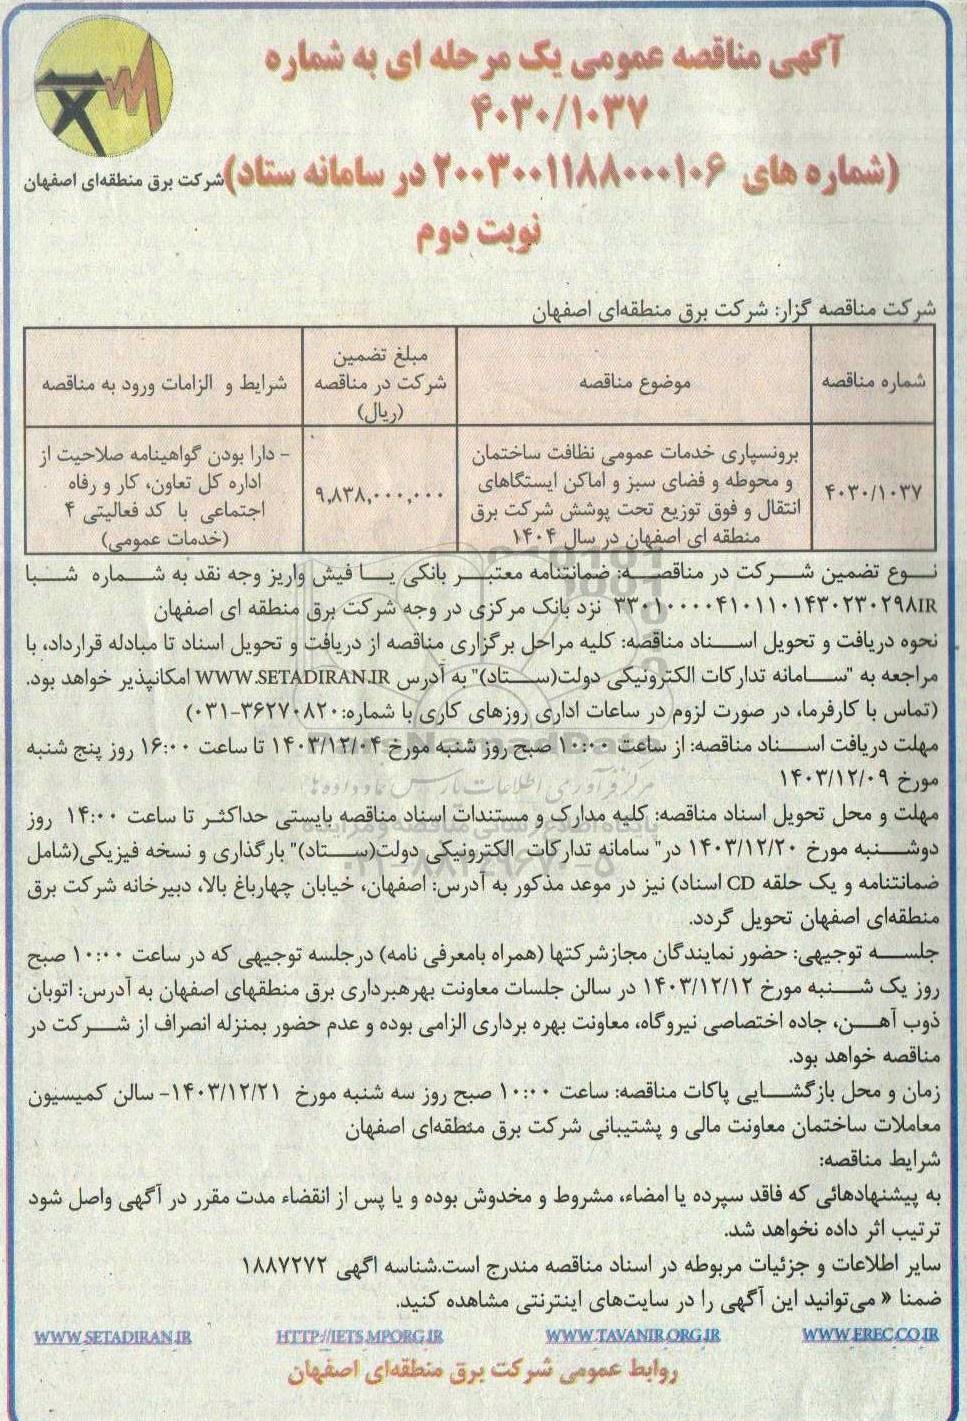 آگهی مناقصه عمومی یک مرحله ای به شماره
۴۰۳۰/۱۰۳۷
(شماره های ۲۰۰۳۰۰۱۱۸۸۰۰۰۱۰۶ در سامانه ستاد)
شرکت برق منطقه‌ای اصفهان
نوبت دوم
شرکت مناقصه گزار: شرکت برق منطقه‌ای اصفهان
شماره مناقصه
موضوع مناقصه
مبلغ تضمین
شرکت در مناقصه
(ریال)
شرایط و الزامات ورود به مناقصه
۴۰۳۰/۱۰۳۷
برونسپاری خدمات عمومی نظافت ساختمان
و محوطه و فضای سبز و اماکن ایستگاهای
انتقال و فوق توزیع تحت پوشش شرکت برق
منطقه ای اصفهان در سال ۱۴۰۴
۹,۸۳۸,۰۰۰,۰۰۰
- دارا بودن گواهینامه صلاحیت از
اداره کل تعاون، کار و رفاه
اجتماعی با کد فعالیتی ۴
(خدمات عمومی)
نوع تضمین شرکت در مناقصه: ضمانتنامه معتبر بانکی یا فیش واریز وجه نقد به شماره شبا
۳۳۰۱۰۰۰۰۴۱۰۱۱۰۱۴۳۰۲۳۰۲۹۸IR نزد بانک مرکزی در وجه شرکت برق منطقه ای اصفهان
نحوه دریافت و تحویل اسناد مناقصه: کلیه مراحل برگزاری مناقصه از دریافت و تحویل اسناد تا مبادله قرارداد، با
مراجعه به "سامانه تدارکات الکترونیکی دولت(ستاد)" به آدرس WWW.SETADIRAN.IR امکانپذیر خواهد بود.
(تماس با کارفرما، در صورت لزوم در ساعات اداری روزهای کاری با شماره:۳۶۲۷۰۸۲۰-۰۳۱)
مهلت دریافت اسناد مناقصه: از ساعت ۱۰:۰۰ صبح روز شنبه مورخ ۱۴۰۳/۱۲/۰۴ تا ساعت ۱۶:۰۰ روز پنج شنبه
مورخ ۱۴۰۳/۱۲/۰۹
مهلت و محل تحویل اسناد مناقصه: کلیه مدارک و مستندات اسناد مناقصه بایستی حداکثر تا ساعت ۱۴:۰۰ روز
دوشنبه مورخ ۱۴۰۳/۱۲/۲۰ در" سامانه تدارکات الکترونیکی دولت(ستاد)" بارگذاری و نسخه فیزیکی(شامل
ضمانتنامه و یک حلقه CD اسناد) نیز در موعد مذکور به آدرس: اصفهان، خیابان چهارباغ بالا، دبیرخانه شرکت برق
منطقه‌ای اصفهان تحویل گردد.
جلسه توجیهی: حضور نمایندگان مجازشرکتها (همراه بامعرفی نامه) درجلسه توجیهی که در ساعت ۱۰:۰۰ صبح
روز یک شنبه مورخ ۱۴۰۳/۱۲/۱۲ در سالن جلسات معاونت بهرهبرداری برق منطقهای اصفهان به آدرس: اتوبان
ذوب آهن، جاده اختصاصی نیروگاه، معاونت بهره برداری الزامی بوده و عدم حضور بمنزله انصراف از شرکت در
مناقصه خواهد بود.
زمان و محل بازگشایی پاکات مناقصه: ساعت ۱۰:۰۰ صبح روز سه شنبه مورخ ۱۴۰۳/۱۲/۲۱- سالن کمیسیون
معاملات ساختمان معاونت مالی و پشتیبانی شرکت برق منطقه‌ای اصفهان
شرایط مناقصه:
به پیشنهادهائی که فاقد سپرده یا امضاء، مشروط و مخدوش بوده و یا پس از انقضاء مدت مقرر در آگهی واصل شود
ترتیب اثر داده نخواهد شد.
سایر اطلاعات و جزئیات مربوطه در اسناد مناقصه مندرج است.شناسه اگهی ۱۸۸۷۲۷۲
ضمنا « می‌توانید این آگهی را در سایت‌های اینترنتی مشاهده کنید.
WWW.EREC.CO.IR WWW.TAVANIR.ORG.IR HTTP://IETS.MPORG.IR WWW.SETADIRAN.IR
روابط عمومی شرکت برق منطقه‌ای اصفهان